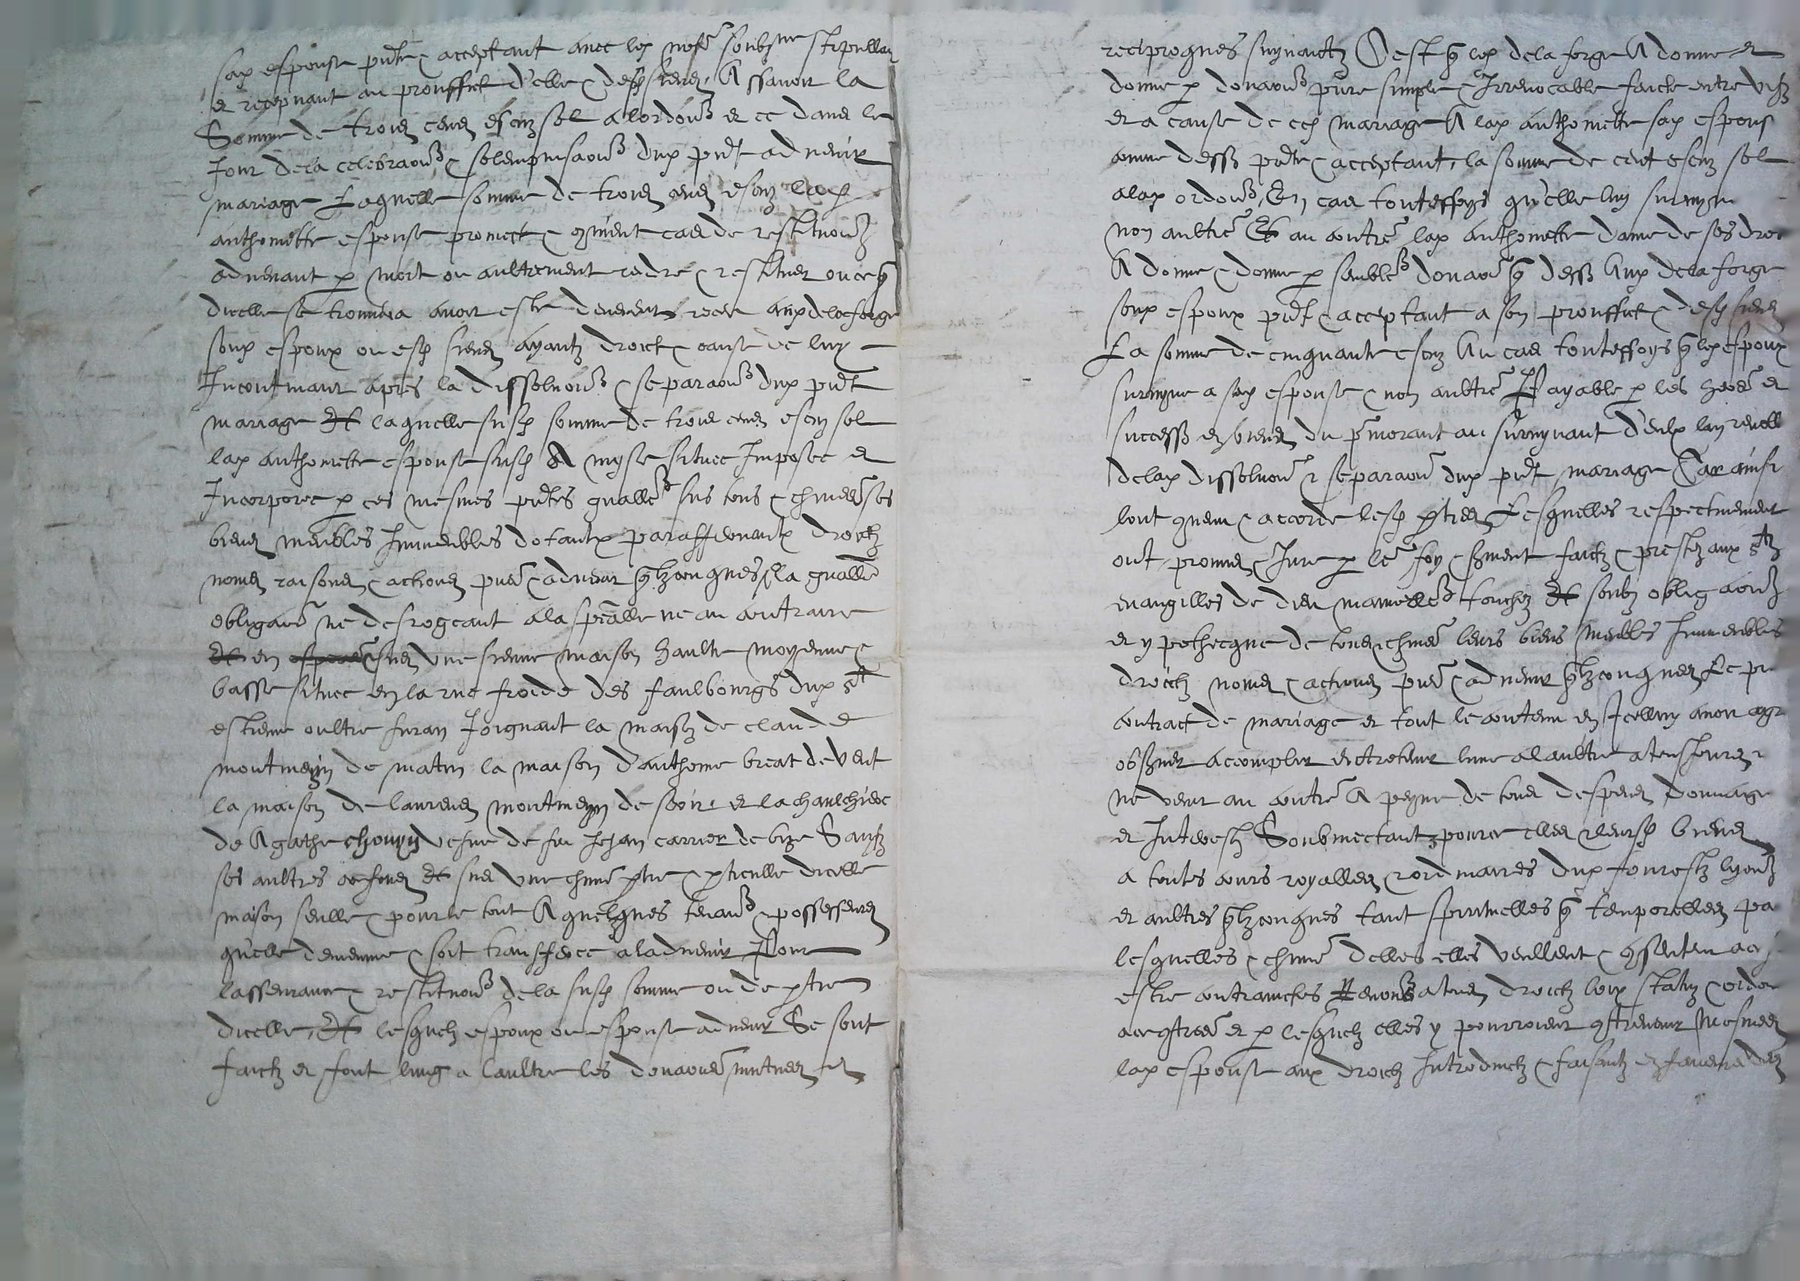 sad espouse pnte & acceptant avec led no.re soubzne stipullan
et recepvant au prouffit d'elle & des siens, Assavoir la
Somme de troys cens escuz sol a lordon.ce et ce dans le
Jour de la celebraon & solempnisaon dud pnt advenir
mariage Laquelle somme de troys cens escuz lad
anthomette espouse promect & convient cas de restituon
advenant p mort ou aultrement rendre & restituer ou ce q
dicelle se trouvera avoir este receu aud de la forge
soud espoux ou es siens ayantz droict & cause de luy
Incontinant apres la dissolution & separaon dud pnt
mariage Et laquelle susd somme de troys cens escuz sol
lad anthomette espouse susd A myse situee Imposee et
Incorporee p ces mesmes pntes sus tous & chuns ses
biens meubles Immeubles dotaulx paraffernaulx droictz
noms raisons & actions pns & advenir qlzconques, la gnalle
obligaon ne desrogeant a la speciale ne au contraire
Et en sus une sienne maison haulte moyenne &
basse situee en la rue froide des faulbourgs dud St
estienne oultre furan Joignant la maison de claude
montmeyn de matin la maison d'anthome breat de vent
la maison de laurens montmeyn de soir et la
de Agathe chouyn vefve de feu Jehan carrier de bize Saufz
ses aultres confins Et sus une chune ptie & pticulle dicelle
maison seulle & pour le tout A quelques tenan & possesseurs
qu'elle devienne & soit transferee a ladvenir Pour
lasseurance & restituon de la susd somme ou de ptie
dicelle, Et lesquelz espoux ou espouse advenir Se sont
faictz et font lung a laultre les donaons mutues et
reciproques suyvantz C'est q led de la forge A donne et
donne p donaon pure simple & Irrevocable faicte entre vifz
et a cause de ced mariage A lad anthomette sad espous
come dess pnte & acceptant, la somme de cent escuz sol
a lad ordon.ce, En cas touteffoys qu'elle luy survyve
non aultre Et au contre lad anthomette dame de ses droi
A donne & donne p semble donaon q dess Aud de la forge
soud espoux pnt & acceptant a son prouffit & des siens
La somme de cinquante escuz Au cas touteffoys q led espoux
survyve a sad espouse & non aultre Payable p les hoirs et
success et biens du pmorant au survyvant d'eulx lan revolu
de lad dissoluon & separaon dud pnt mariage Car ainsi
lont convenu & accorde lesd pties Lesquelles respectivement
ont promis & Jure p le foy & sment faictz & prestez aux stz
evangilles de dieu manuellement touchez Et soubz obligaon
et ypotheque de tous & chuns leurs biens meubles Immeubles
droictz noms & actions pns & advenir qlzconques Le pnt
contract de mariage et tout le contenu en Icelluy avoir agr
obsver accomplir entretenir lune a laultre a tousjours &
ne venir au contre A peyne de tous despens dommage
et Intrestz Soubmectant pource elles & leursd biens
a toutes cours royalles & ordinaires dud fourestz lyon
et aultres qlzconques tant spirituelles q temporelles pa
lesquelles & chune delles elles veullent & consentent
estre contrainctes Renon a tous droictz loix statuz & orden
et p lesquelz elles y pourroient contrevenir mesmes
lad espouse aux droictz Introduictz & faisantz en faveur des